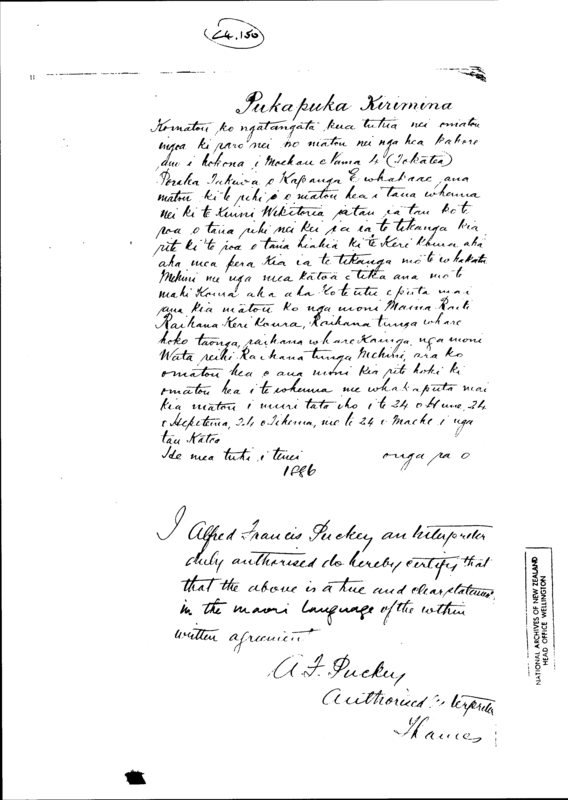 C4.150
Pukapuka Kirimina
Komatou ko ngatangata kua tuhia nei o matou
ingoa ki raro nei no matou nei nga hea kahore
ano i hokona i Moehau o Nama 4 (Tokatea)
Poraka Takiwa o Kapanga E whakaae ana
matou ki te rihi o matou hea i taua whenua
nei ki te Kuini Wikitoria
roa o taua rihi nei kei a ia te tikanga kia
rite ki te roa o tana hiahia ki te Keri Koura aha
aha mea pera Kia ia te tikanga mo te whakatu
Mihini me nga mea katoa e tika ana mo te
mahi Koura aha aha Ko te utu e puta mai
ana kia matou ko nga moni Maina Raiti
Raihana Keri Koura, Raihana tunga whare
hoko taonga, raihana whare Kainga, nga moni
Wata reihi Raihana tunga Mihini, ara ko
o matou hea o aua moni kia rite hoki ki
o matou hea i te whenua me whakaputa mai
kia matou i muri tata iho i te 24 o Hune, 24
o Hepetema, 24 o Tihema, me te 24 o Maehe i nga
tau Katoa
He mea tuhi i tenei onga ra o
1886
I Alfred Francis Puckey an Interpreter
duly authorised do hereby certify that
that the above is a true and clear statement
in the maori Language of the within
written agreement
A. F. Puckey
Authorised Interpreter
Thames
NATIONAL ARCHIVES OF NEW ZEALAND
HEAD OFFICE WELLINGTON